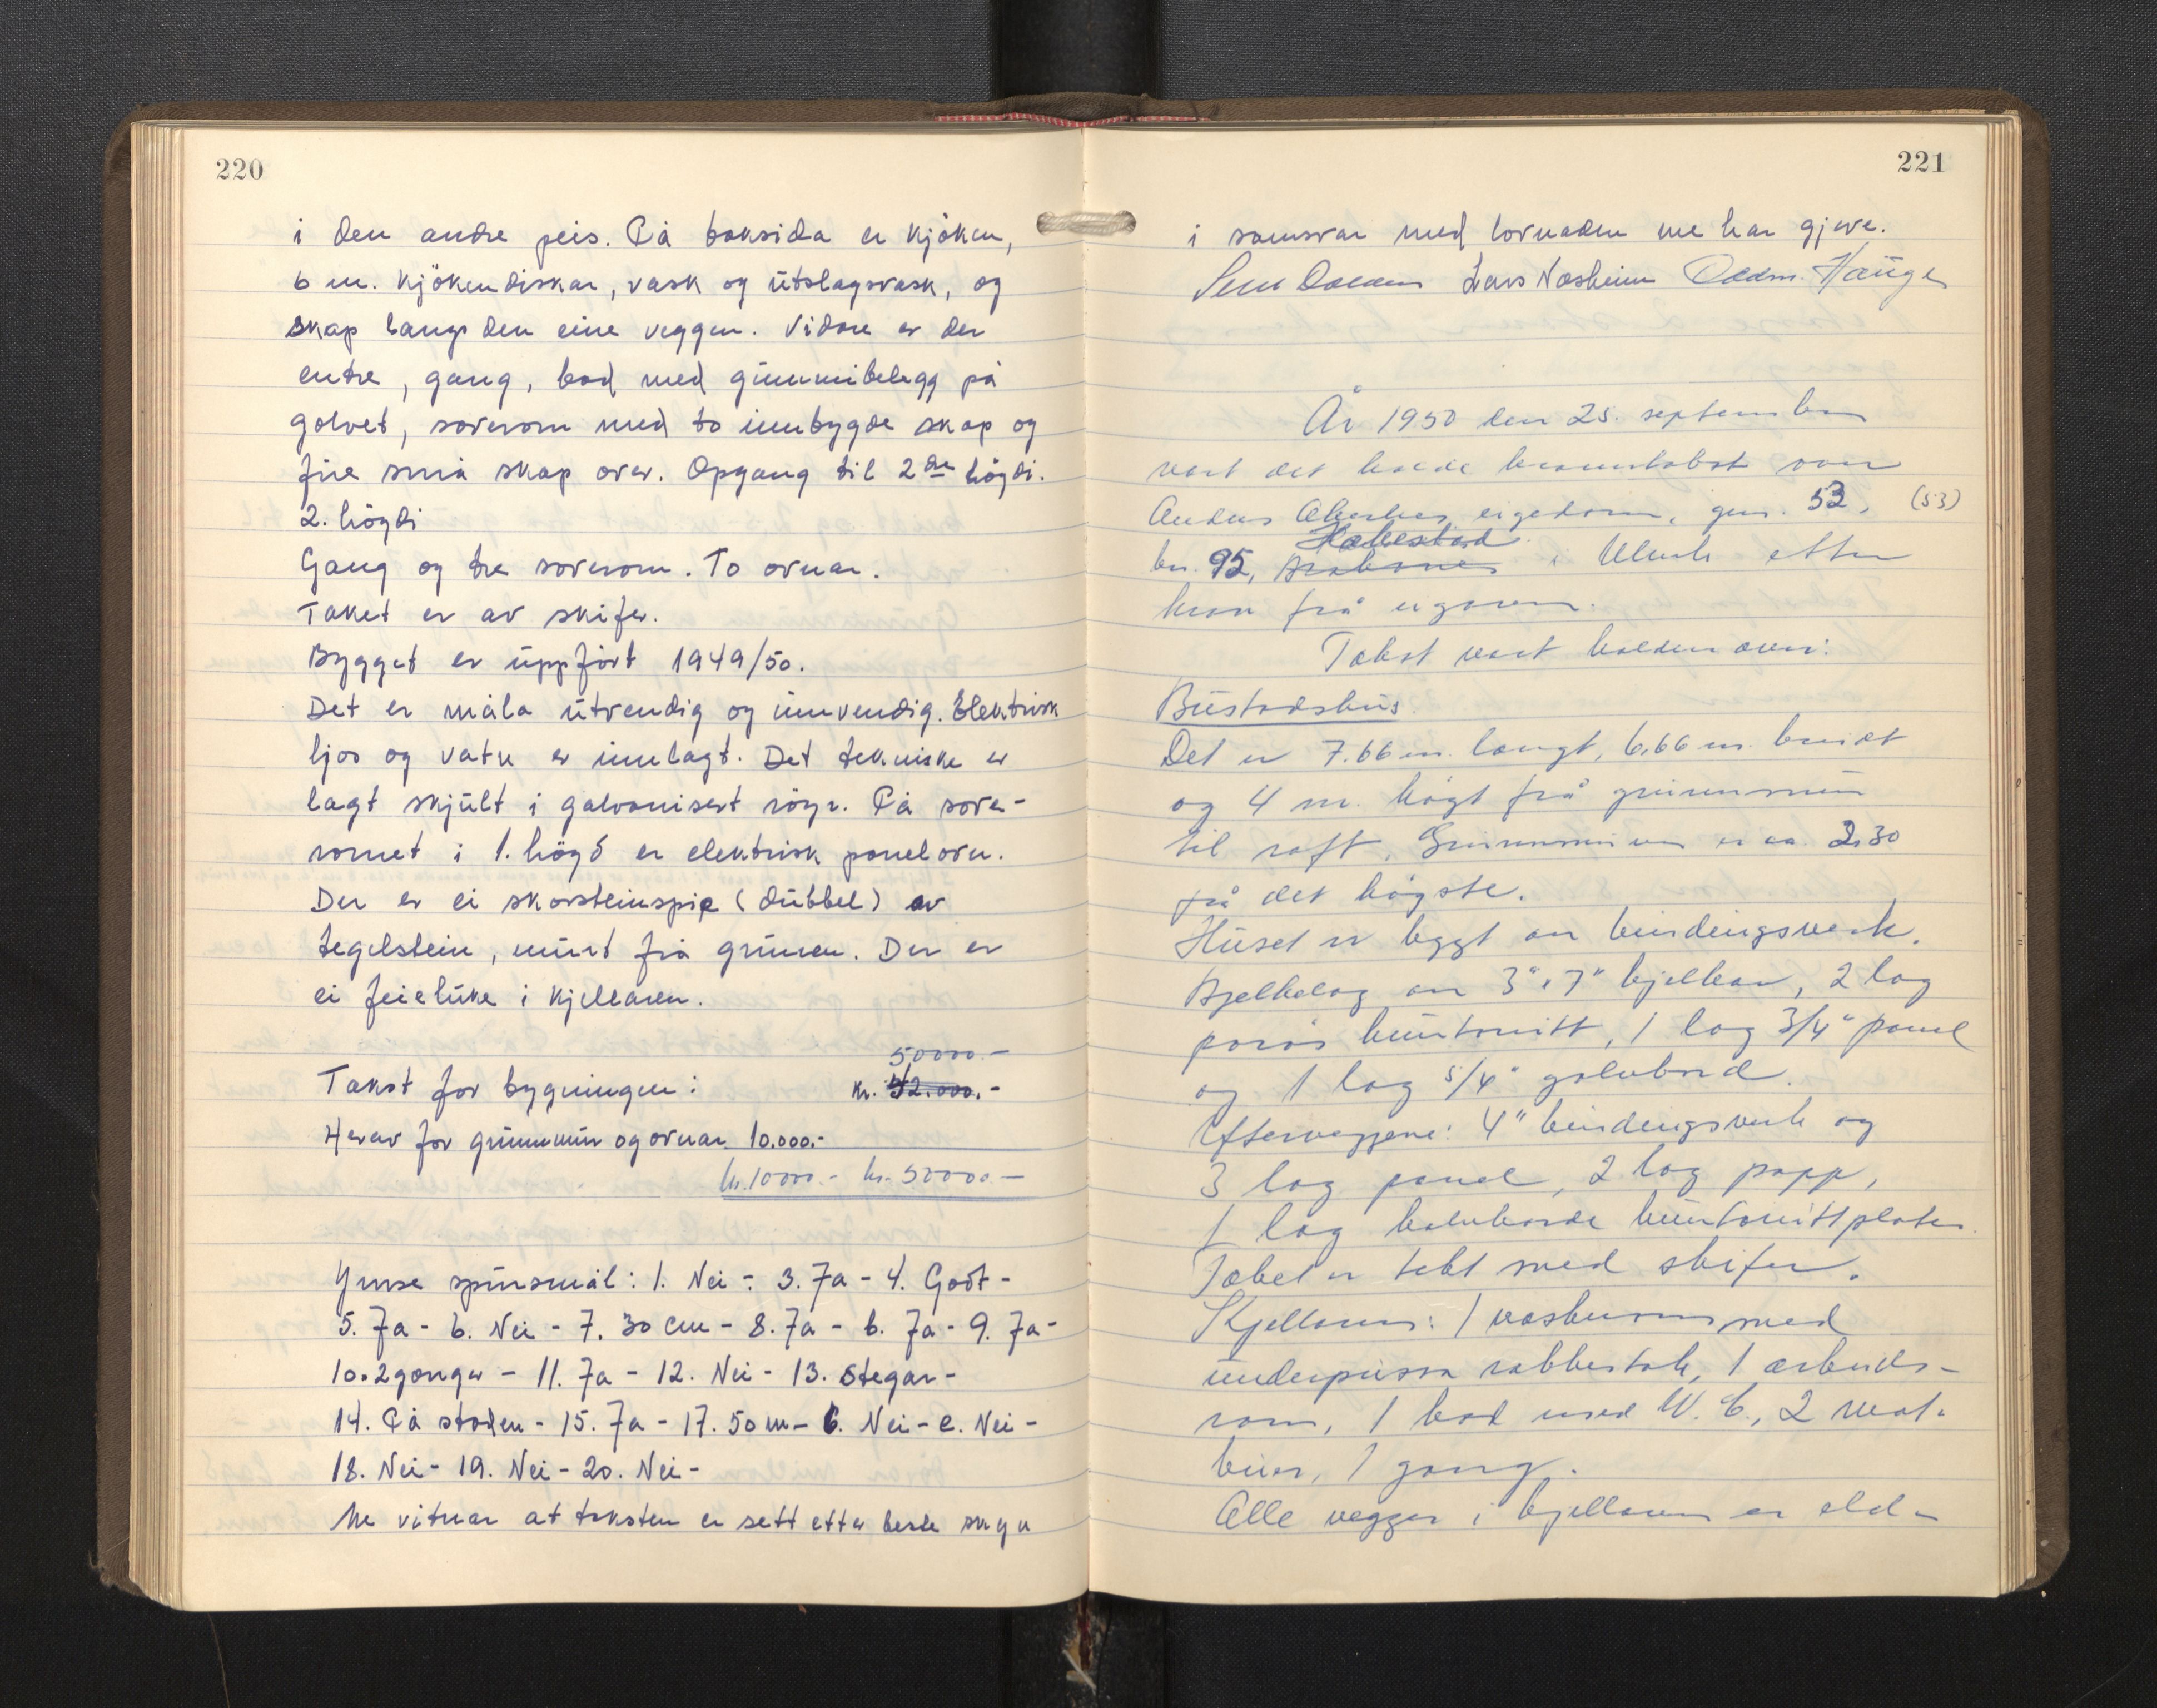 220
i den andre peis. På baksida er kjöken,
6 m. kjökendiskar, vask og utslagsvask, og
skap langs den eine veggen. Vidare er der
entre, gang, bad med gummibelegg på
golvet, soverom med to innbygde skap og
fire små skap over. Opgang til 2dre högdi.
2. högdi
Gang og tre soverom. To ovnar.
Taket er av skifer.
Bygget er uppfört 1949/50.
Det er måla utvendig og innvendig. Elektrisk
ljos og vatn er innlagt. Det tekniske er
lagt skjult i galvanisert röyr. På sove-
romet i 1. högd er elektrisk panelovn.
Der er ei skorsteinspipe (dubbel) av
tegelstein, murt frå grunnen. Der er
ei feieluke i kjellaren.
50000.-
Takst for bygningen: kr. 42.000.-
Herav for grunnmur og ovnar 10.000.-
kr. 10000.- kr. 50000.-
Ymse spursmål: 1. Nei - 3. Ja - 4. Godt -
5. Ja - 6. Nei - 7. 30 cm - 8. Ja - b. Ja - 9. Ja -
10. 2 gonger - 11. Ja - 12. Nei - 13. Stegar -
14. På staden - 15. Ja - 17. 50 m - b. Nei - c. Nei -
18. Nei - 19. Nei - 20. Nei -
Me vitnar at taksten er sett etter beste skyn
221
i samsvar med lovnaden me har gjeve.
Lars Næsheim Oddm. Hauge
År 1950 den 25. september
vart det halde branntakst over
Anders eigedom, gnr. 53, (53)
bnr. 95, Habestad i Ulvik etter
krav frå eigaren.
Takst vart halden over:
Bustadshus.
Det er 7.66 m. langt, 6,66 m. breidt
og 4 m. högt frå grunnmur
til raft. Grunnmuren er ca. 2,30
på det högste.
Huset er bygt av bindingsverk.
Bjelkelag av 3" x 7" bjelkar, 2 lag
porös huntonitt, 1 lag 3/4" panel
og 1 lag 5/4" golvbord.
Ytterveggene: 4" bindingsverk og
3 lag panel, 2 lag papp,
1 lag halvharde huntonittplater.
Taket er tekt med skifer.
Kjellaren: 1 vaskerom med
underpussa rabbestak, 1 arbeids-
rom, 1 bad med W.C., 2 mat-
buer, 1 gang.
Alle vegger i kjellaren er eld-